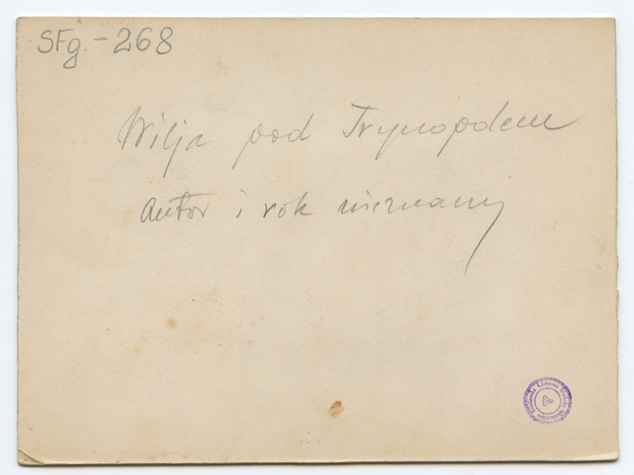 SFg.-268
Wilja pod Trynopolem
autor i rok nieznany